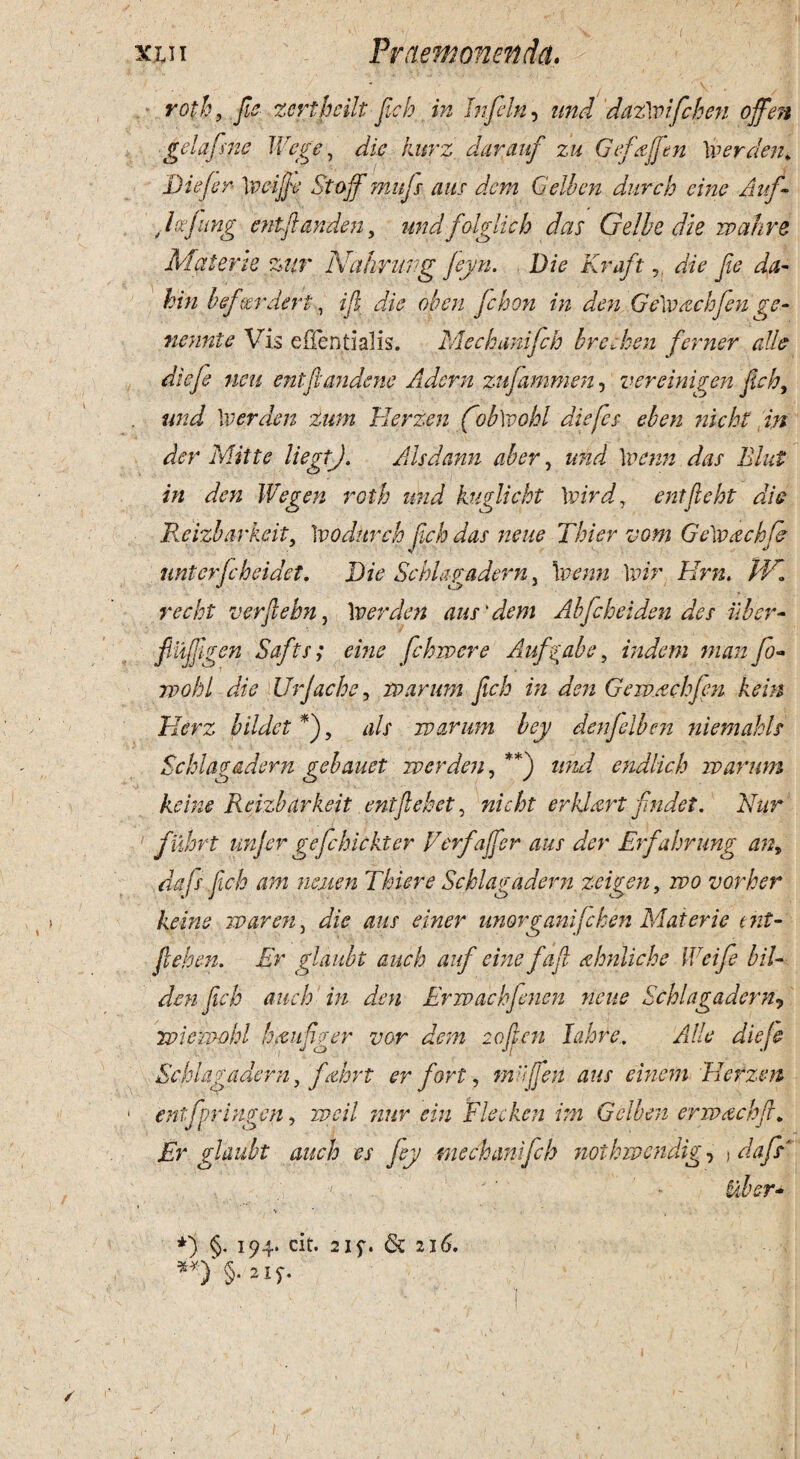 XLII Praemonenda.
roth, sie zertheilt sich in Inseln, und dazwischen offen
gelassne Wege, die kurz darauf zu Gefæssen werden.
Dieser weisse Stoff muss aus dem Gelben durch eine Auf-
lœsung entstanden, und folglich das Gelbe die wahre
Materie zur Nahrung seyn. Die Kraft, die sie da-
hin befœrdert, ist die oben schon in den Gewæchsen ge-
nennte Vis essentialis. Mechanisch brechen ferner alle
diese neu entstandene Adern zusammen, vereinigen sich,
und werden zum Herzen (obwohl dieses eben nicht in
der Mitte liegt). Alsdann aber, und wenn das Blut
in den Wegen roth und kuglicht wird, entsteht die
Reizbarkeit, wodurch sich das neue Thier vom Gewæchse
unterscheidet. Die Schlagadern, wenn wir Hrn. W.
recht verstehn, werden aus dem Abscheiden des über-
flüssigen Safts; eine schwere Aufgabe, indem man so-
wohl die Ursache, warum sich in den Gewæchsen kein
Herz bildet *), als warum bey denselben niemahls
Schlagadern gebauet werden, **) und endlich warum
keine Reizbarkeit entstehet, nicht erklært findet. Nur
führt unser geschickter Verfasser aus der Erfahrung an,
dass sich am neuen Thiere Schlagadern zeigen, wo vorher
keine waren, die aus einer unorganischen Materie ent-
stehen. Er glaubt auch auf eine fast æhnliche Weise bil-
den sich auch in den Erwachsenen neue Schlagadern,
wiewohl hæufiger vor dem 20sten Iahre. Alle diese
Schlagadern, fæhrt er fort, müssen aus einem Herzen
entspringen, weil nur ein Flecken im Gelben erwæchst.
Er glaubt auch es sey mechanisch nothwendig, dass
über-
*) §. 194. cit. 215. & 216.
**) §. 215.